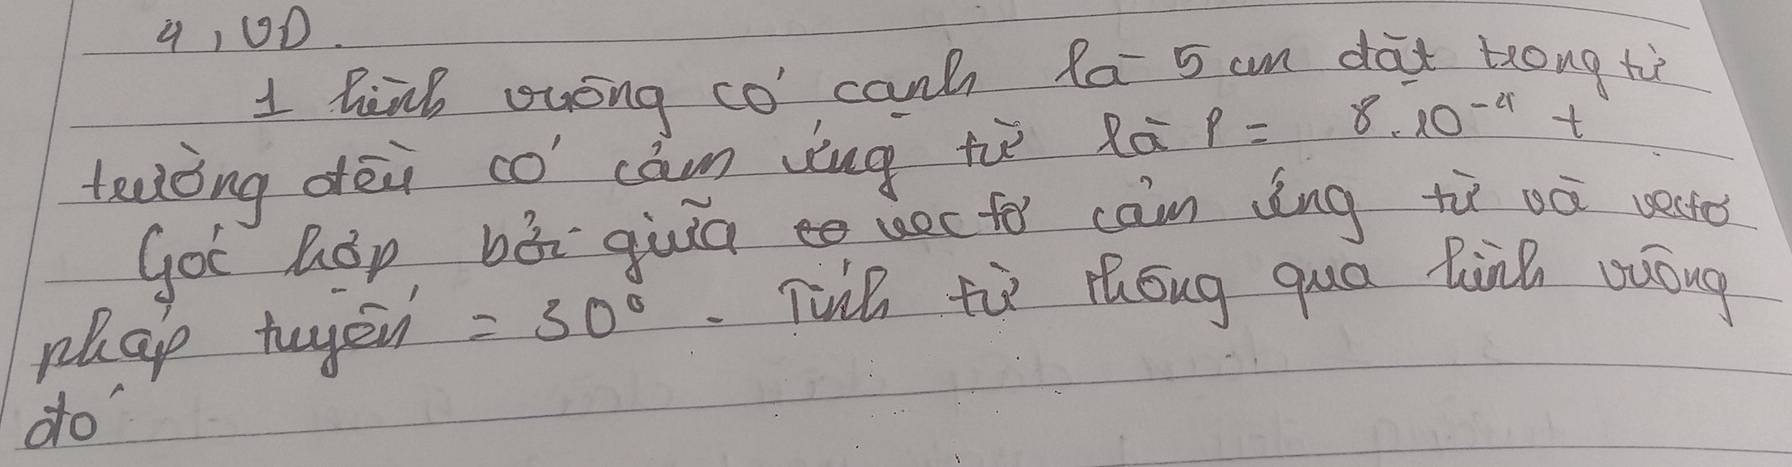 4, VD.
1 hình vuông có cạnh là 5 cm đặt trong từ
trường đều có cảm ứng từ là P = 8.10⁻⁴ t
Góc hợp bởi giữa vec tơ cảm ứng từ và vectơ
pháp tuyến = 30⁰. Tính từ thông qua hình vuông
đó